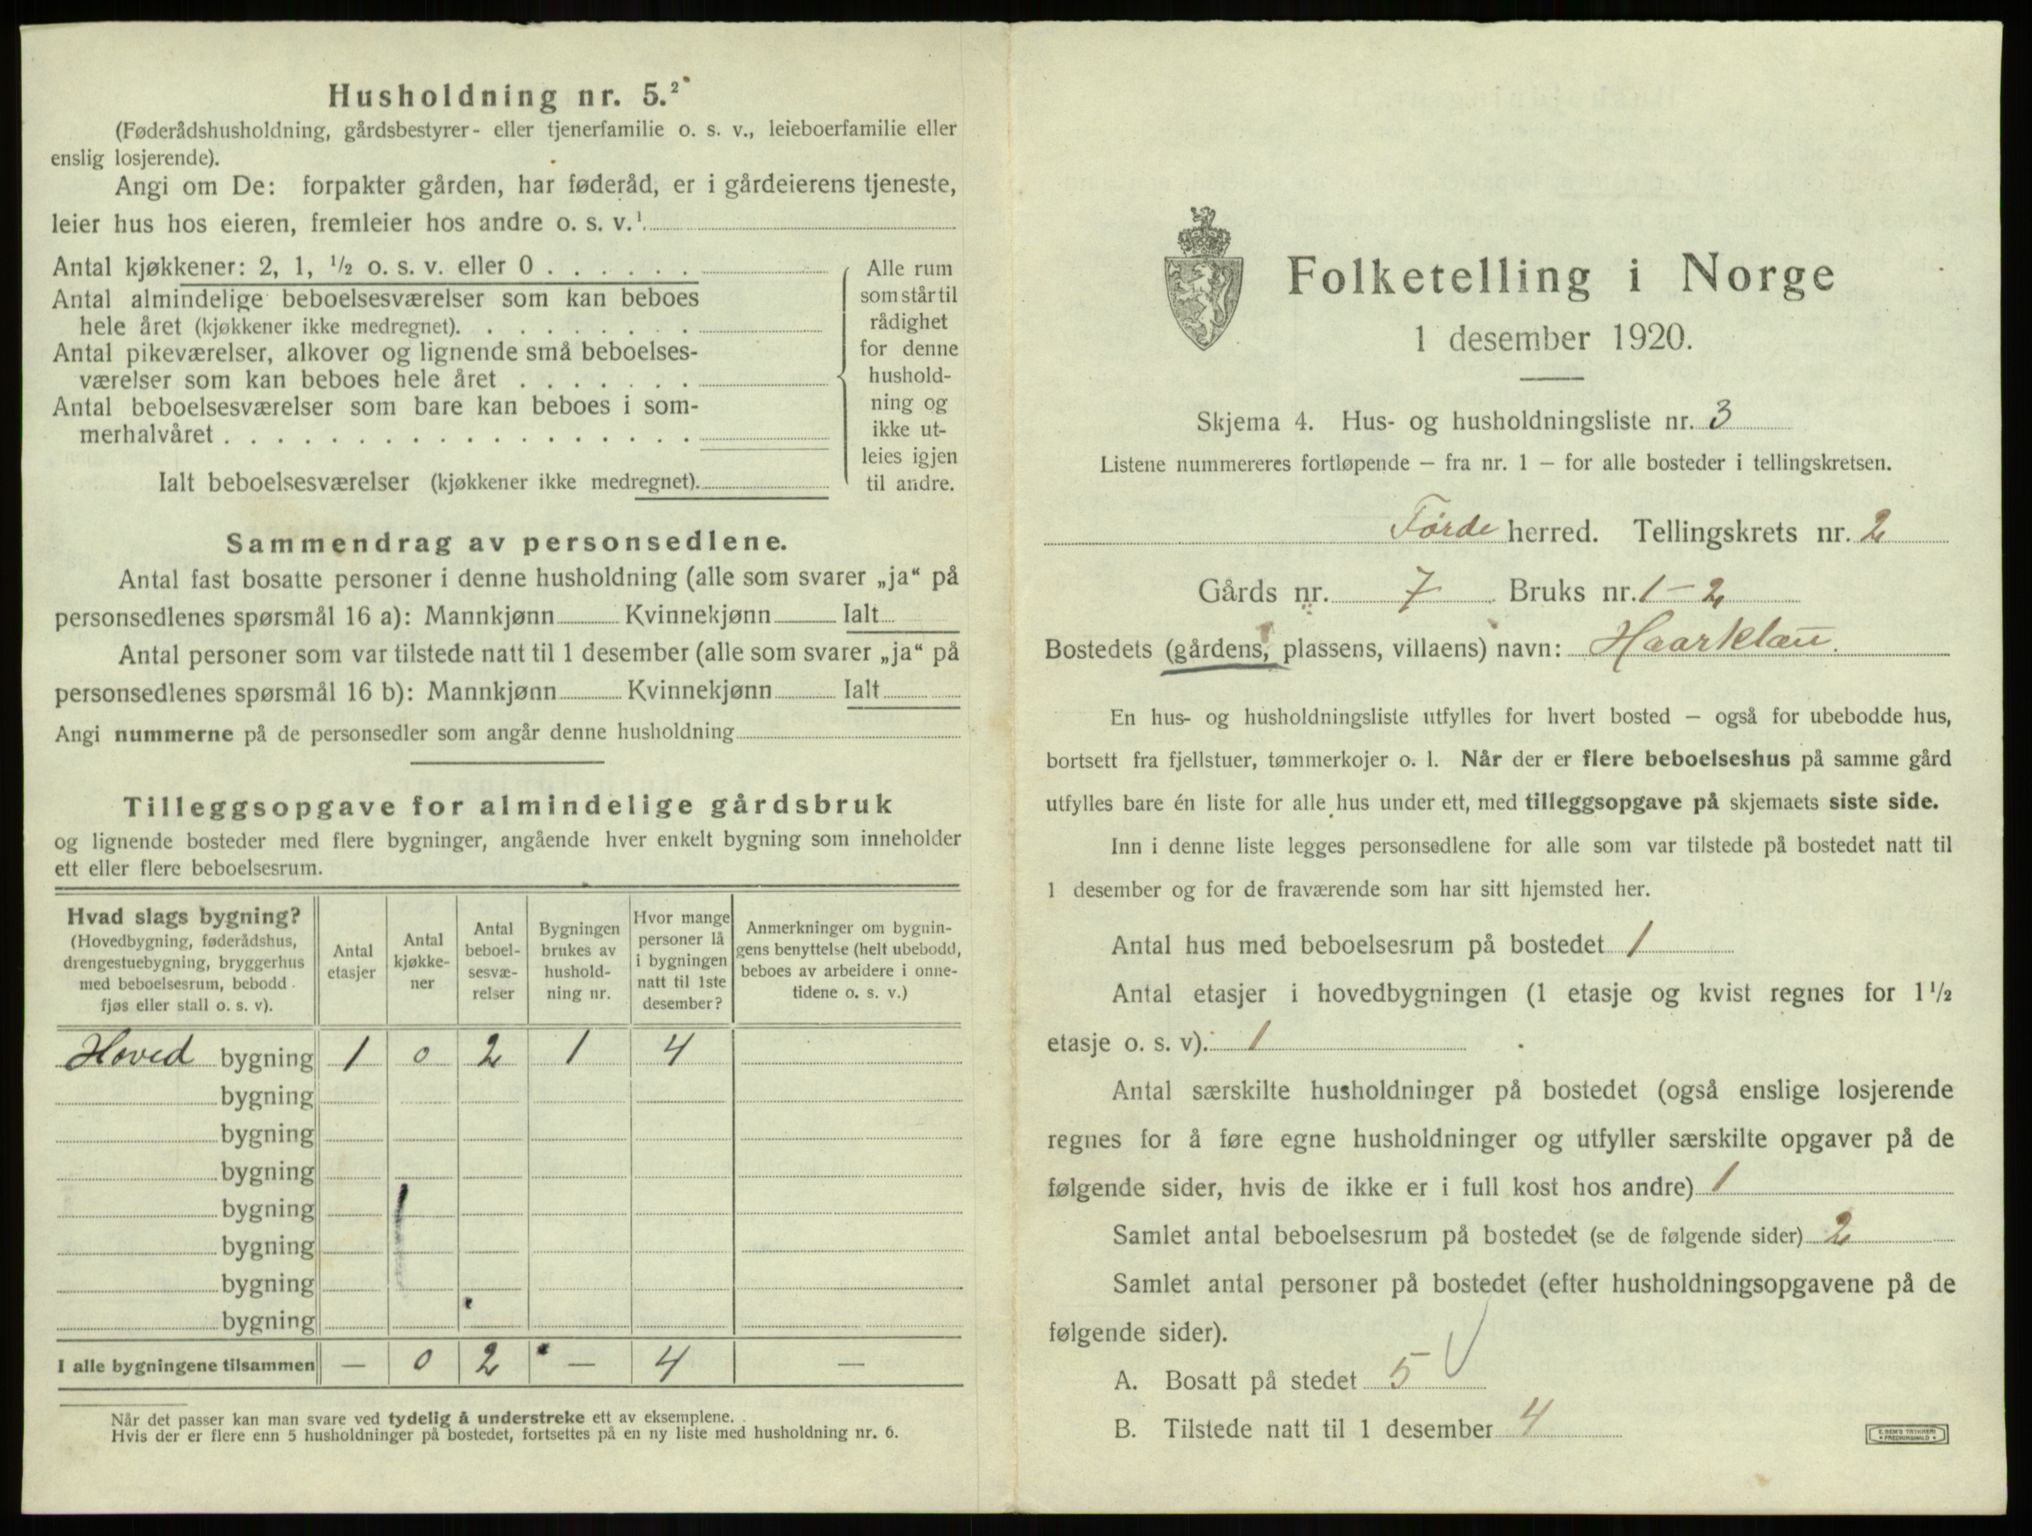 Husholdning nr. 5.²
(Føderådshusholdning, gårdsbestyrer- eller tjenerfamilie o. s. v., leieboerfamilie eller
enslig losjerende).
Angi om De: forpakter gården, har føderåd, er i gårdeierens tjeneste,
leier hus hos eieren, fremleier hos andre o. s. v.¹
Antal kjøkkener: 2, 1, ½ o. s. v. eller 0 . . . . . .
Antal almindelige beboelsesværelser som kan beboes
hele året (kjøkkener ikke medregnet). . . . . . . . .
Antal pikeværelser, alkover og lignende små beboelses-
værelser som kan beboes hele året . . . . . . .
Antal beboelsesværelser som bare kan beboes i som-
merhalvåret . . . . . . . . . . . . . . . . . .
Ialt beboelsesværelser (kjøkkener ikke medregnet).
Alle rum
som står til
rådighet
for denne
hushold-
ning og
ikke ut-
leies igjen
til andre.
Sammendrag av personsedlene.
Antal fast bosatte personer i denne husholdning (alle som svarer „ja“ på
personsedlenes spørsmål 16 a): Mannkjønn Kvinnekjønn Ialt
Antal personer som var tilstede natt til 1 desember (alle som svarer „ja“ på
personsedlenes spørsmål 16 b): Mannkjønn Kvinnekjønn Ialt
Angi nummerne på de personsedler som angår denne husholdning
Tilleggsopgave for almindelige gårdsbruk
og lignende bosteder med flere bygninger, angående hver enkelt bygning som inneholder
ett eller flere beboelsesrum.
Hvad slags bygning?
(Hovedbygning, føderådshus,
drengestuebygning, bryggerhus
med beboelsesrum, bebodd
fjøs eller stall o. s. v).
Antal
etasjer
Antal
kjøkke-
ner
Antal
beboel-
sesvæ-
relser
Bygningen
brukes av
hushold-
ning nr.
Hvor mange
personer lå
i bygningen
natt til 1ste
desember?
Anmerkninger om bygnin-
gens benyttelse (helt ubebodd,
beboes av arbeidere i onne-
tidene o. s. v.)
Hoved bygning 1 0 2 1 4
bygning
bygning
bygning
bygning
bygning
bygning
bygning
I alle bygningene tilsammen — 0 2 — 4 —
Når det passer kan man svare ved tydelig å understreke ett av eksemplene.
Hvis der er flere enn 5 husholdninger på bostedet, fortsettes på en ny liste med husholdning nr. 6.
Folketelling i Norge
1 desember 1920.
Skjema 4. Hus- og husholdningsliste nr. 3
Listene nummereres fortløpende – fra nr. 1 – for alle bosteder i tellingskretsen.
Førde herred. Tellingskrets nr. 2
Gårds nr. 7 Bruks nr. 1-2
Bostedets (gårdens, plassens, villaens) navn: Haarklau.
En hus- og husholdningsliste utfylles for hvert bosted – også for ubebodde hus,
bortsett fra fjellstuer, tømmerkojer o. l. Når der er flere beboelseshus på samme gård
utfylles bare én liste for alle hus under ett, med tilleggsopgave på skjemaets siste side.
Inn i denne liste legges personsedlene for alle som var tilstede på bostedet natt til
1 desember og for de fraværende som har sitt hjemsted her.
Antal hus med beboelsesrum på bostedet 1
Antal etasjer i hovedbygningen (1 etasje og kvist regnes for 1½
etasje o. s. v). 1
Antal særskilte husholdninger på bostedet (også enslige losjerende
regnes for å føre egne husholdninger og utfyller særskilte opgaver på de
følgende sider, hvis de ikke er i full kost hos andre) 1
Samlet antal beboelsesrum på bostedet (se de følgende sider) 2
Samlet antal personer på bostedet (efter husholdningsopgavene på de
følgende sider).
A. Bosatt på stedet 5
B. Tilstede natt til 1 desember 4
E. SEM'S TRYKKERI
FREDRIKSHALD